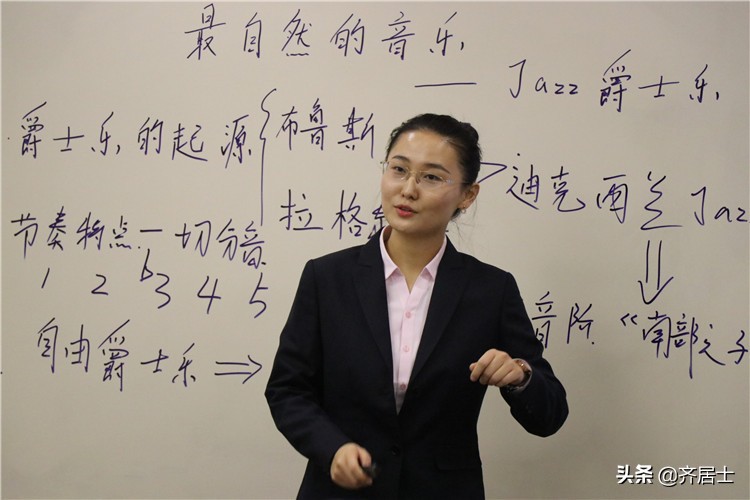 最自然的音乐
—— Jazz 爵士乐
爵士乐的起源
布鲁斯
拉格
迪克西兰 Jaz
节奏特点一切分音
1 2 b3 4 5
音阶
《南部之子
自由爵士乐 ⇒
头条 @齐居士